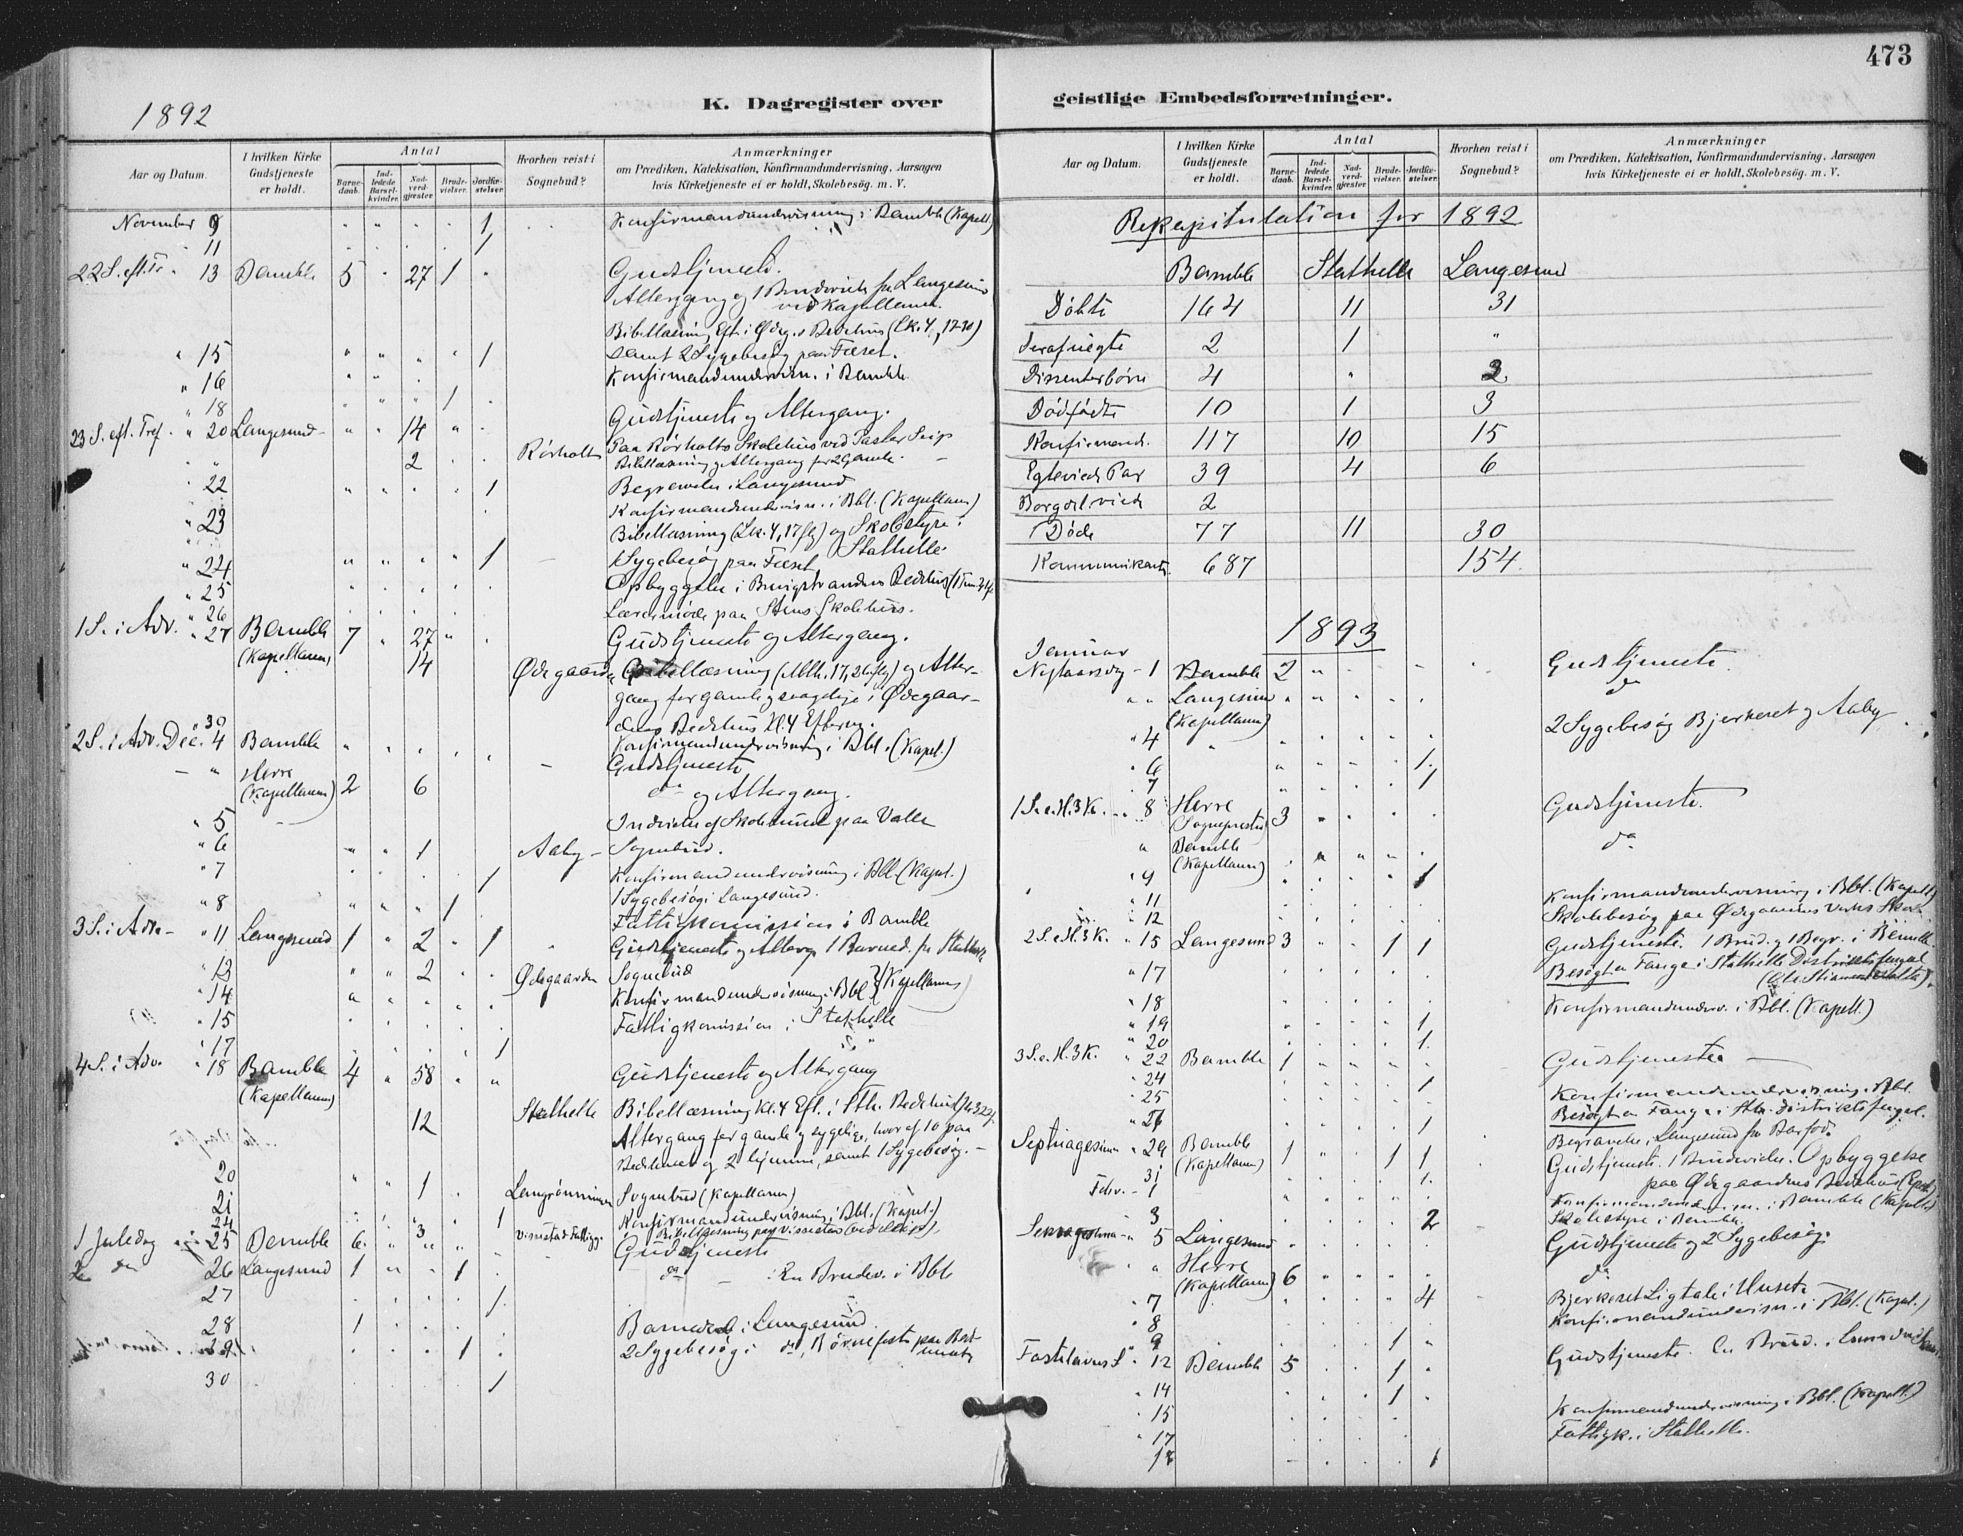 473
1892
K. Dagregister over geistlige Embedsforretninger.
Aar og Datum.
I hvilken Kirke Gudstjeneste er holdt.
Antal
Barnedaab.
Indledede Barselkvinder.
Nadverdgjester
Brudevielser.
Jordfæstelser
Hvorhen reist i Sognebud?
Anmærkninger
om Prædiken, Katekisation, Konfirmandundervisning, Aarsagen
hvis Kirketjeneste ei er holdt, Skolebesøg. m. V.
November 9 1 Konfirmandundervisning i Bamble (Kapell)
11 1
22 S. eft. Tr. 13 Bamble 5 27 1 Gudstjeneste.
Altergang og 1 Brudevielse fra Langesund
ved Kapellanen.
Bibellæsning Eft. i Ødeg.s Bedehus (Lk. 4,
15 1 samt 2 Sygebesøg paa Fæset.
16 Konfirmandundervisn. i Bamble
18 1
23 S. eft. Tref. 20 Langesund 14 Gudstjeneste og Altergang.
2 Rørholts Paa Rørholts Skolehus ved Pastor
Bibellæsning og Altergang for 2 Gamle.
22 1 Begravelse i Langesund
Konfirmandundervisn. i Bbl. (Kapellanen)
23 Bibellæsning (Lk. 4, 17 flg) og Skolestyre i
Stathelle
24 1 1 Sygebesøg paa Fæset
25 Opbyggelse i Brevigstrandens Bedehus
26 Lærermøde paa Stens Skolehus.
1 S. i Adv. 27 Bamble 7 27 Gudstjeneste og Altergang.
(Kapellanen) 14 Ødegaardens Bibellæsning (Mtth. 17, flg) og Alter-
gang for gamle og svagelige i Ødegaar-
dens Bedehus Kl. 4 Efterm.
30 Konfirmandundervisning i Bbl. (Kapel.)
2 S. i Adv. Dec. 4 Bamble Gudstjeneste
Herre
(Kapellanen) 2 6 do og Altergang.
5 Indvielse af Skolehuset paa Valle
6 1 Aaby Sognebud.
7 1 Konfirmandundervisning i Bbl. (Kapel.)
1 Sygebesøg i Langesund.
8 1 Fattigkomission i Bamble
3 S. i Adv. 11 Langesund 1 2 1 Gudstjeneste og Alterg. 1 Barned. fra Stathelle
13 2 Ødegaarden Sognebud
14 Konfirmandundervisning i Bbl (Kapellanen)
15 Fattigkomission i Stathelle
17 1
4 S. i Adv. 18 Bamble 4 58 Gudstjeneste og Altergang
(Kapellanen)
12 Stathelle Bibellæsning Kl. 4 Eft. i Sth. Bedehus
Altergang for gamle og sygelige, hvor af 10 paa
Bedehuset og 2 hjemme, samt 1 Sygebesøg.
20 1 Langrønningen Sognebud (Kapellanen)
21 1 Konfirmandundervisning i Bbl. (Kapel.)
24 3 Vinstad Fattigg. Bibellæsning paa Vinstad
1 Juledag 25 Bamble 6 Gudstjeneste
2 do 26 Langesund 1 1 do En Brudev. i Bble
27 1
28 1 Barnedaab i Langesund.
29 1 2 Sygebesøg i do, Børnefest paa Bed-
huset
30 1
Aar og Datum.
I hvilken Kirke Gudstjeneste er holdt.
Antal
Barnedaab.
Indledede Barselkvinder.
Nadverdgjester
Brudevielser.
Jordfæstelser.
Hvorhen reist i Sognebud?
Anmærkninger
om Prædiken, Katekisation, Konfirmandundervisning, Aarsagen
hvis Kirketjeneste ei er holdt, Skolebesøg. m. V.
Rekapitulation for 1892
Bamble Stathelle Langesund
Døbte 164 11 31
2 1 "
Dissenterbørn 4 " 2
Dødfødte 10 1 3
Konfirmand. 117 10 15
Egteviede Par 39 4 6
Borgerl. viede 2
Døde 77 11 30
Kommunikanter 687 154
1893
Januar
Nytaarsdag 1 Bamble 2 Gudstjeneste
Langesund do
(Kapellanen)
4 2 Sygebesøg Bjerkeset og Aaby
6 1
7 1
1 S. e. H. 3 K. 8 Herre 3 Gudstjeneste.
(Sogneprest)
Bamble do
(Kapellanen)
9 1
11 Konfirmandundervisning i Bbl. (Kapell)
12 Skolebesøg paa Ødegaardens Verks Skole
2 S. e. H. 3 K. 15 Langesund 3 1 1 Gudstjeneste. 1 Brud. og 1 Begr. i Bamble
17 Besøgt en Fange i Stathelle Distriktsfengsel
18 Konfirmandunderv. i Bbl. (Kapell.)
19 1
20 1
3 S. e. H. 3 K. 22 Bamble 1 Gudstjeneste
24 1 Konfirmandundervisning i Bbl.
25 Besøgt en Fange i Sth. Distriktsfengsel.
26 1 Begravelse i Langesund
Septuagesima 29 Bamble 1 1 1 Gudstjeneste. 1 Brudevielse. Opbyggelse
(Kapellanen) paa Ødegaardens Bedehus
31 1
Febr. 1 Konfirmandunderv. i Bamble (Kapell)
3 2 Skolestyre i Bamble
Sexagesima 5 Langesund Gudstjeneste og 2 Sygebesøg
Herre do
(Kapellanen) 6
7 4 Bjerkeset Ligtale i Huset
8 Konfirmandundervisn. i Bbl. (Kapel.)
9 1
Fastelavns S. 12 Bamble 5 1 Gudstjeneste. En Brud.
14 1
15 Konfirmandundervisning i Bbl. (Kapell.)
17 Fattigk. i Stathelle.
18 1